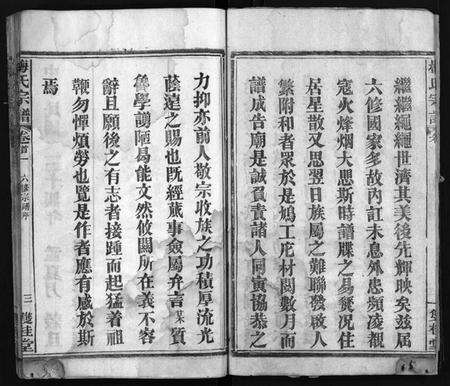 繼繼繩繩世濟其美後先輝映矣兹届
六修國家多故内訌未息外患頻凌覩
寇火烽烟大思斯時譜牒之易䙝况住
居星散又思翌日族屬之難聯發啟人
繁附和者眾於是鳩工庀材閱數月而
譜成告廟是誠貴諸人同寅協恭之
力抑亦前人敬宗收族之功積厚流光
蔭遠之賜也既經蕆事僉屬弁言某質
魯學譾陋曷能文然攸關所在義不容
辭且願後之有志者接踵而起猛着祖
鞭勿憚煩勞也覽是作者應有感於斯
焉
梅氏宗譜
卷首一
六修宗譜序
三
雙桂堂